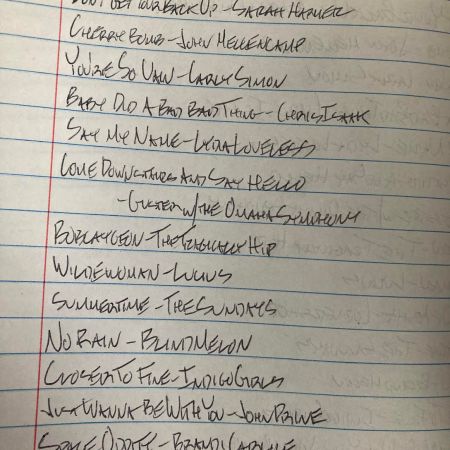 DON'T GET YOUR BACK UP - SARAH HARMER
CHERRY BOMB - JOHN MELLENCAMP
YOU'RE SO VAIN - CARLY SIMON
BABY DID A BAD BAD THING - CHRIS ISAAK
SAY MY NAME - LYDIA LOVELESS
COME DOWNSTAIRS AND SAY HELLO
- GUSTER W/ THE OMAHA SYMPHONY
BOBCAYGEON - THE TRAGICALLY HIP
WILDEWOMAN - LUCIUS
SUMMERTIME - THE SUNDAYS
NO RAIN - BLIND MELON
CLOSER TO FINE - INDIGO GIRLS
JUST WANNA BE WITH YOU - JOHN PRINE
SPACE ODDITY - BRANDI CARLILE